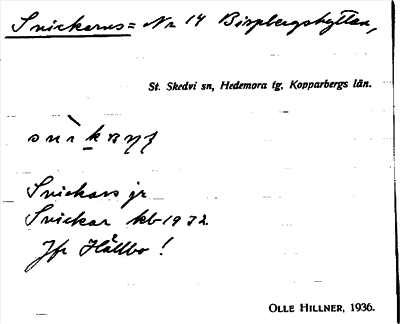 Snickarns = Nr 14 Bispbergshyttan,
St. Skedvi sn, Hedemora tg, Kopparbergs län.
Snickars jr
Snickar kb 1932
Jfr Hållbo !
OLLE HILLNER, 1936.